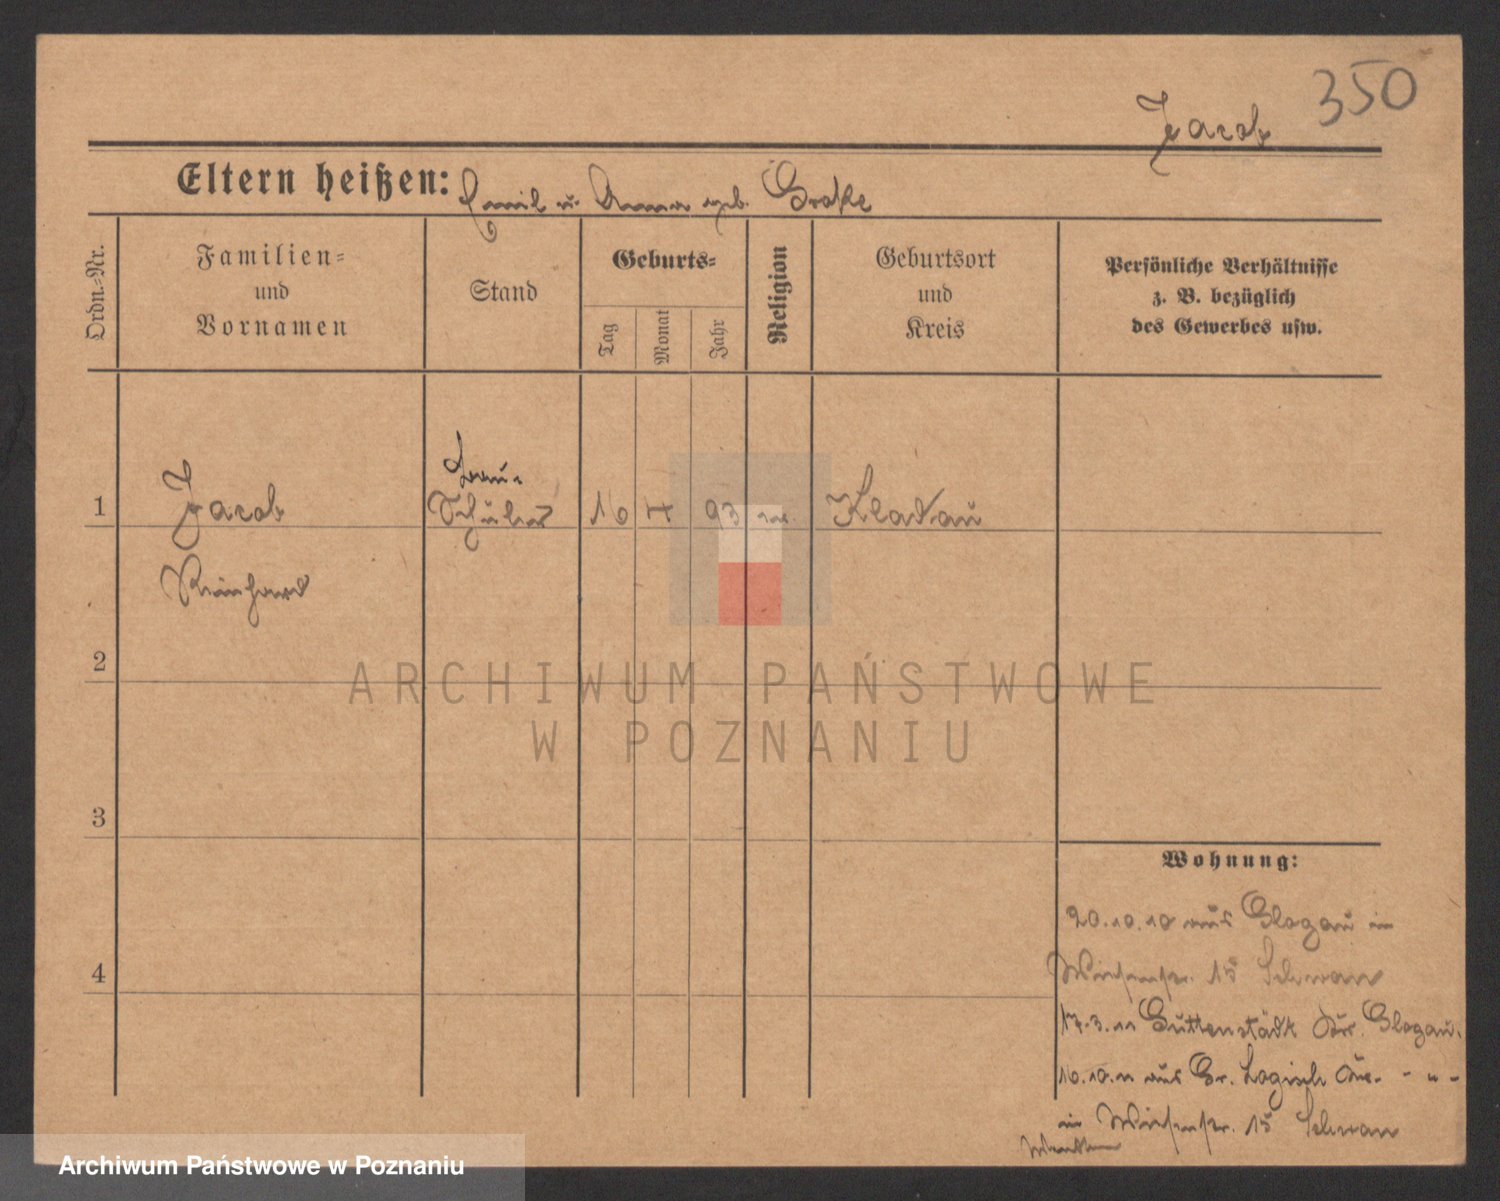 350
Jacob
Eltern heißen: Emil u. Anna geb. Grake
Ordn.-Nr.
Familien-
und
Vornamen
Stand
Geburts-
Tag
Monat
Jahr
Religion
Geburtsort
und
Kreis
Persönliche Verhältnisse
z. B. bezüglich
des Gewerbes usw.
1
Jacob
Bau-
Schüler
16 4 93
Kladau
Reinhard
2
ARCHIWUM PAŃSTWOWE
W POZNANIU
3
Wohnung:
20.10.10 aus Glogau in
15
4
17.3.11 Guttenstädt Krs. Glogau.
16.10.11 aus Gr. Logisch Krs. - " -
in 15
Archiwum Państwowe w Poznaniu